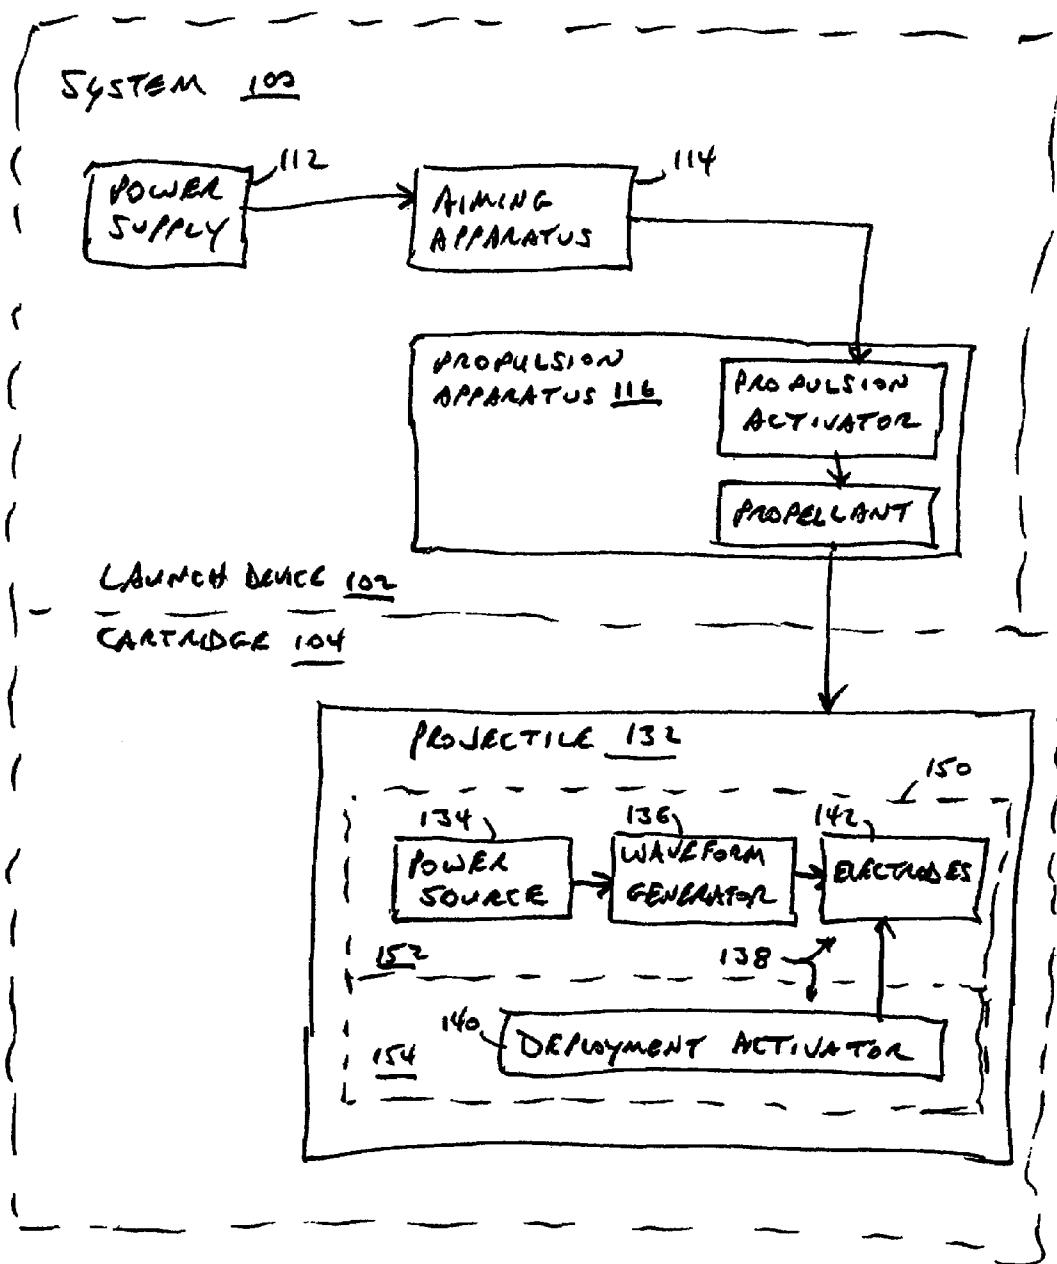 SYSTEM 100
POWER
SUPPLY
112
AIMING
APPARATUS
114
PROPULSION
APPARATUS 116
PROPULSION
ACTIVATOR
PROPELLANT
LAUNCH DEVICE 102
CARTRIDGE 104
PROJECTILE 132
150
134
POWER
SOURCE
136
WAVEFORM
GENERATOR
142
ELECTRODES
152
138
140
DEPLOYMENT ACTIVATOR
154